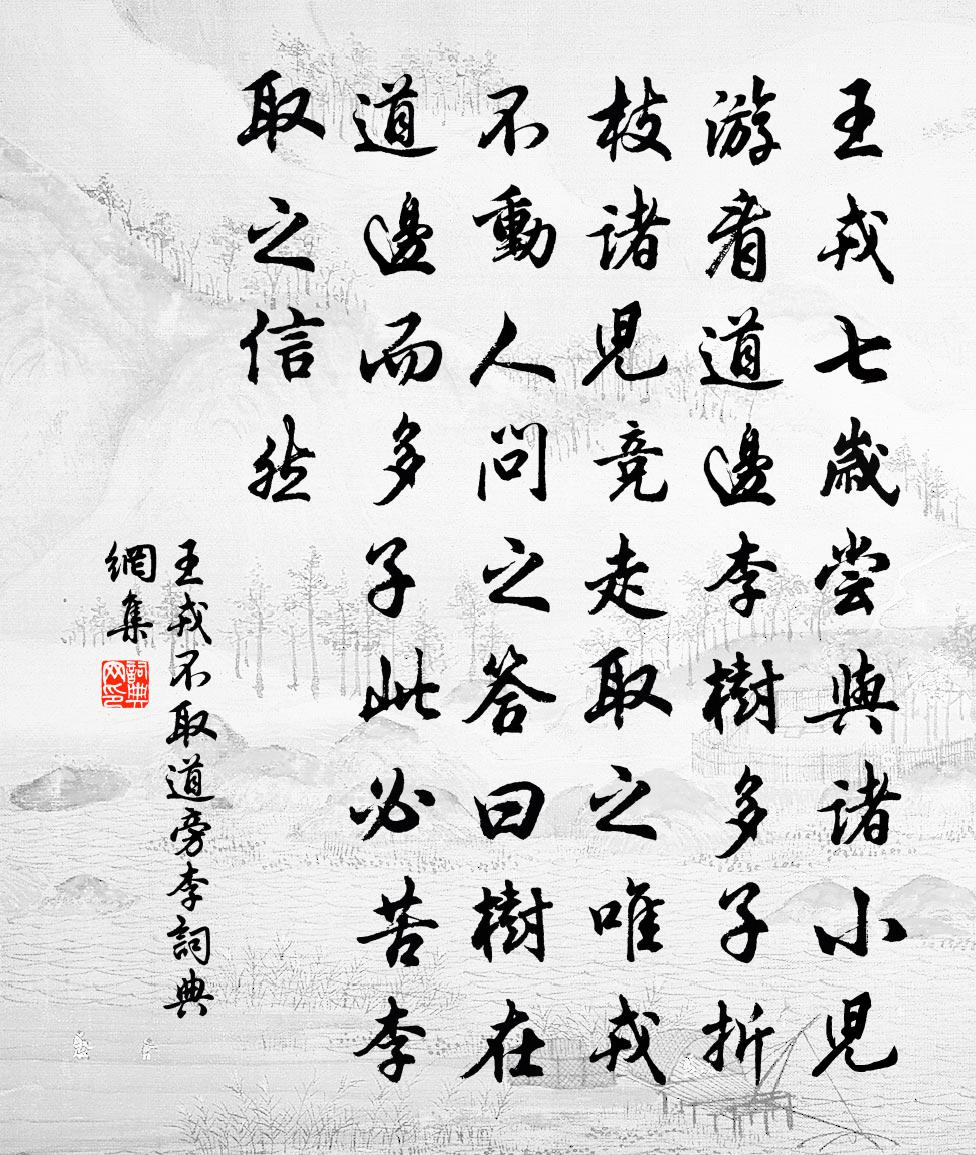 王戎七歲嘗與諸小兒
游看道邊李樹多子折
枝諸兒競走取之唯戎
不動人問之答曰樹在
道邊而多子此必苦李
取之信然
王戎不取道旁李詞典
網集
詞典